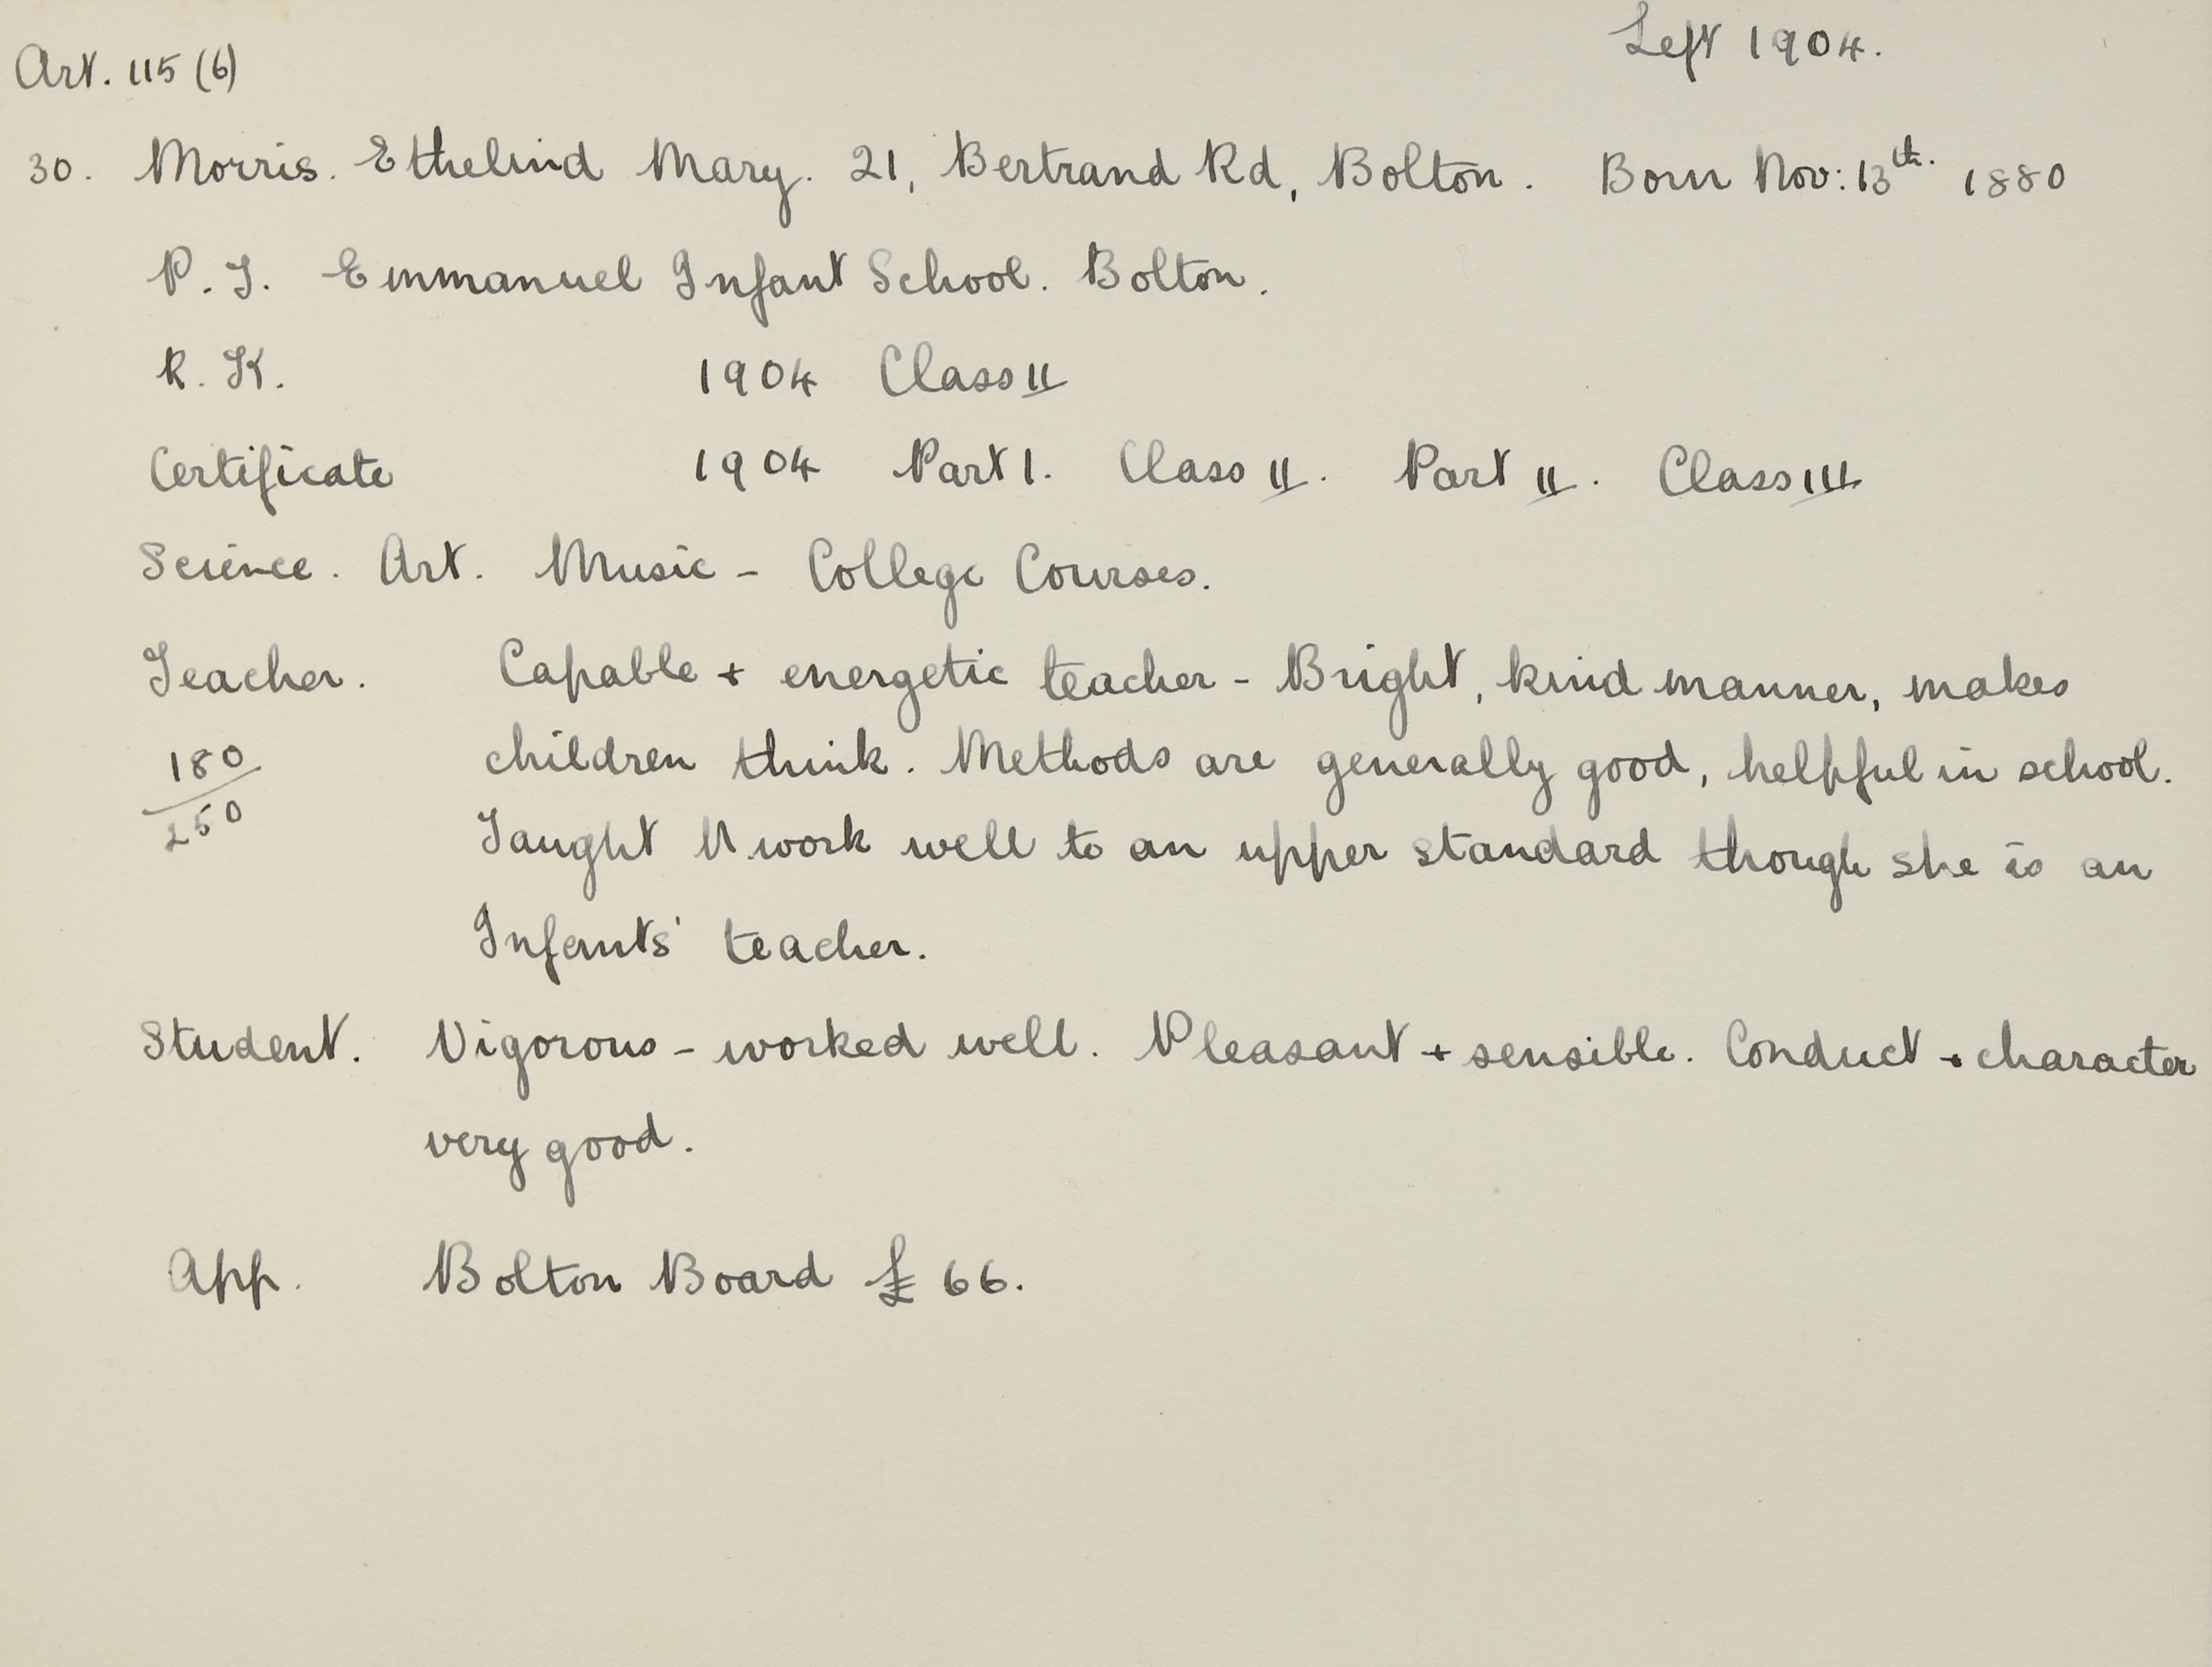 Left 1904.
Art. 115 (6)
30. Morris. Ethelind Mary. 21, Bertrand Rd, Bolton. Born Nov: 13th. 1880
P. T. Emmanuel Infant School. Bolton.
R. K. 1904 Class II
Certificate 1904 Part I. Class II. Part II. Class III
Science. Art. Music - College Courses.
Teacher. Capable + energetic teacher - Bright, kind manner, makes
180/250 children think. Methods are generally good, helpful in school.
Taught work well to an upper standard though she is an
Infants' teacher.
Student. Vigorous - worked well. Pleasant + sensible. Conduct + character
very good.
App. Bolton Board £66.